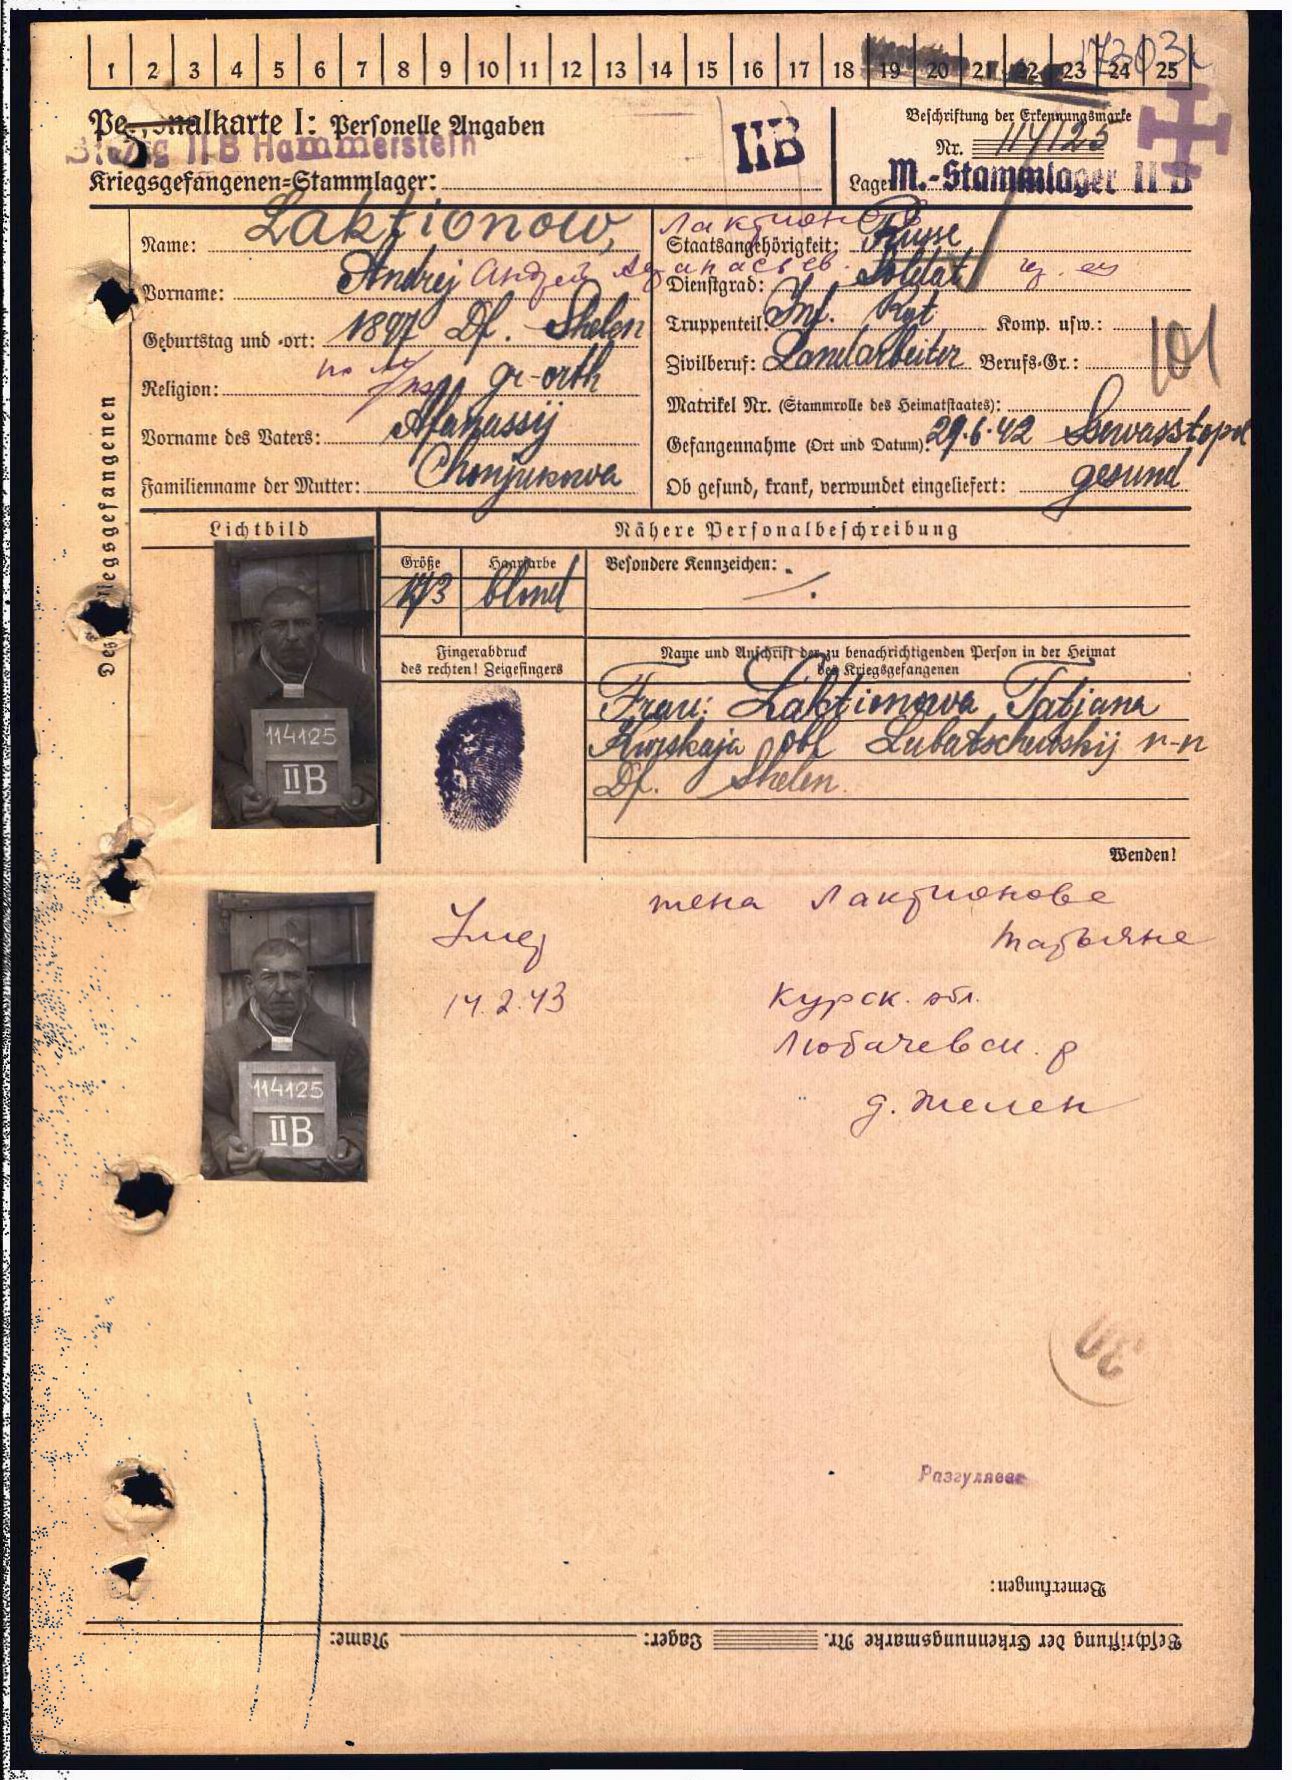 1 2 3 4 5 6 7 8 9 10 11 12 13 14 15 16 17 18 19 20 21 22 23 24 25
Personalkarte I: Personelle Angaben
Stalag II B Hammerstein
Kriegsgefangenen-Stammlager:
IIB
Beschriftung der Erkennungsmarke
Nr. 114125
Lager M.-Stammlager II B
Des Kriegsgefangenen
Name: Laktionow,
Лактионов
Vorname: Andrej Андрей Афанасьев.
Geburtstag und -ort: 1897 Df. Shelen
Religion: gr-orth
Vorname des Vaters: Afanassij
Familienname der Mutter: Chonjukowa
Staatsangehörigkeit: Russe
Dienstgrad: Soldat
Truppenteil: Inf. Rgt Komp. usw.:
Zivilberuf: Landarbeiter Berufs-Gr.:
101
Matrikel Nr. (Stammrolle des Heimatstaates):
Gefangennahme (Ort und Datum): 29.6.42 Sewasstopol
Ob gesund, krank, verwundet eingeliefert: gesund
Lichtbild
Nähere Personalbeschreibung
Größe
173
Haarfarbe
blond
Besondere Kennzeichen: ./.
Fingerabdruck
des rechten! Zeigefingers
Name und Anschrift der zu benachrichtigenden Person in der Heimat
des Kriegsgefangenen
Frau: Laktionowa Tatjana
Kurskaja obl Lubatschewskij r-n
Df. Shelen.
Wenden!
114125
IIB
114125
IIB
Умер
14.2.43
жена Лактионове
Татьяне
Курск. обл.
Любачевск. р
д. Желен
Разгуляева
Bemerkungen:
Beschriftung der Erkennungsmarke Nr. Lager: Name: